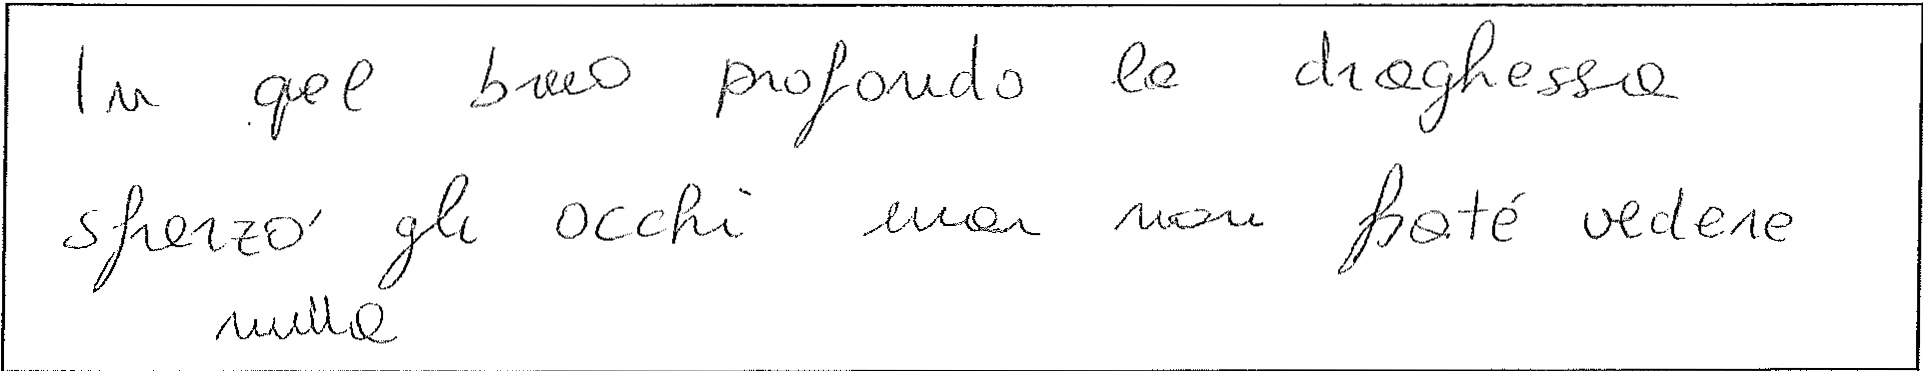 In qel buio profondo la draghessa
sforzò gli occhi ma non poté vedere
nulla